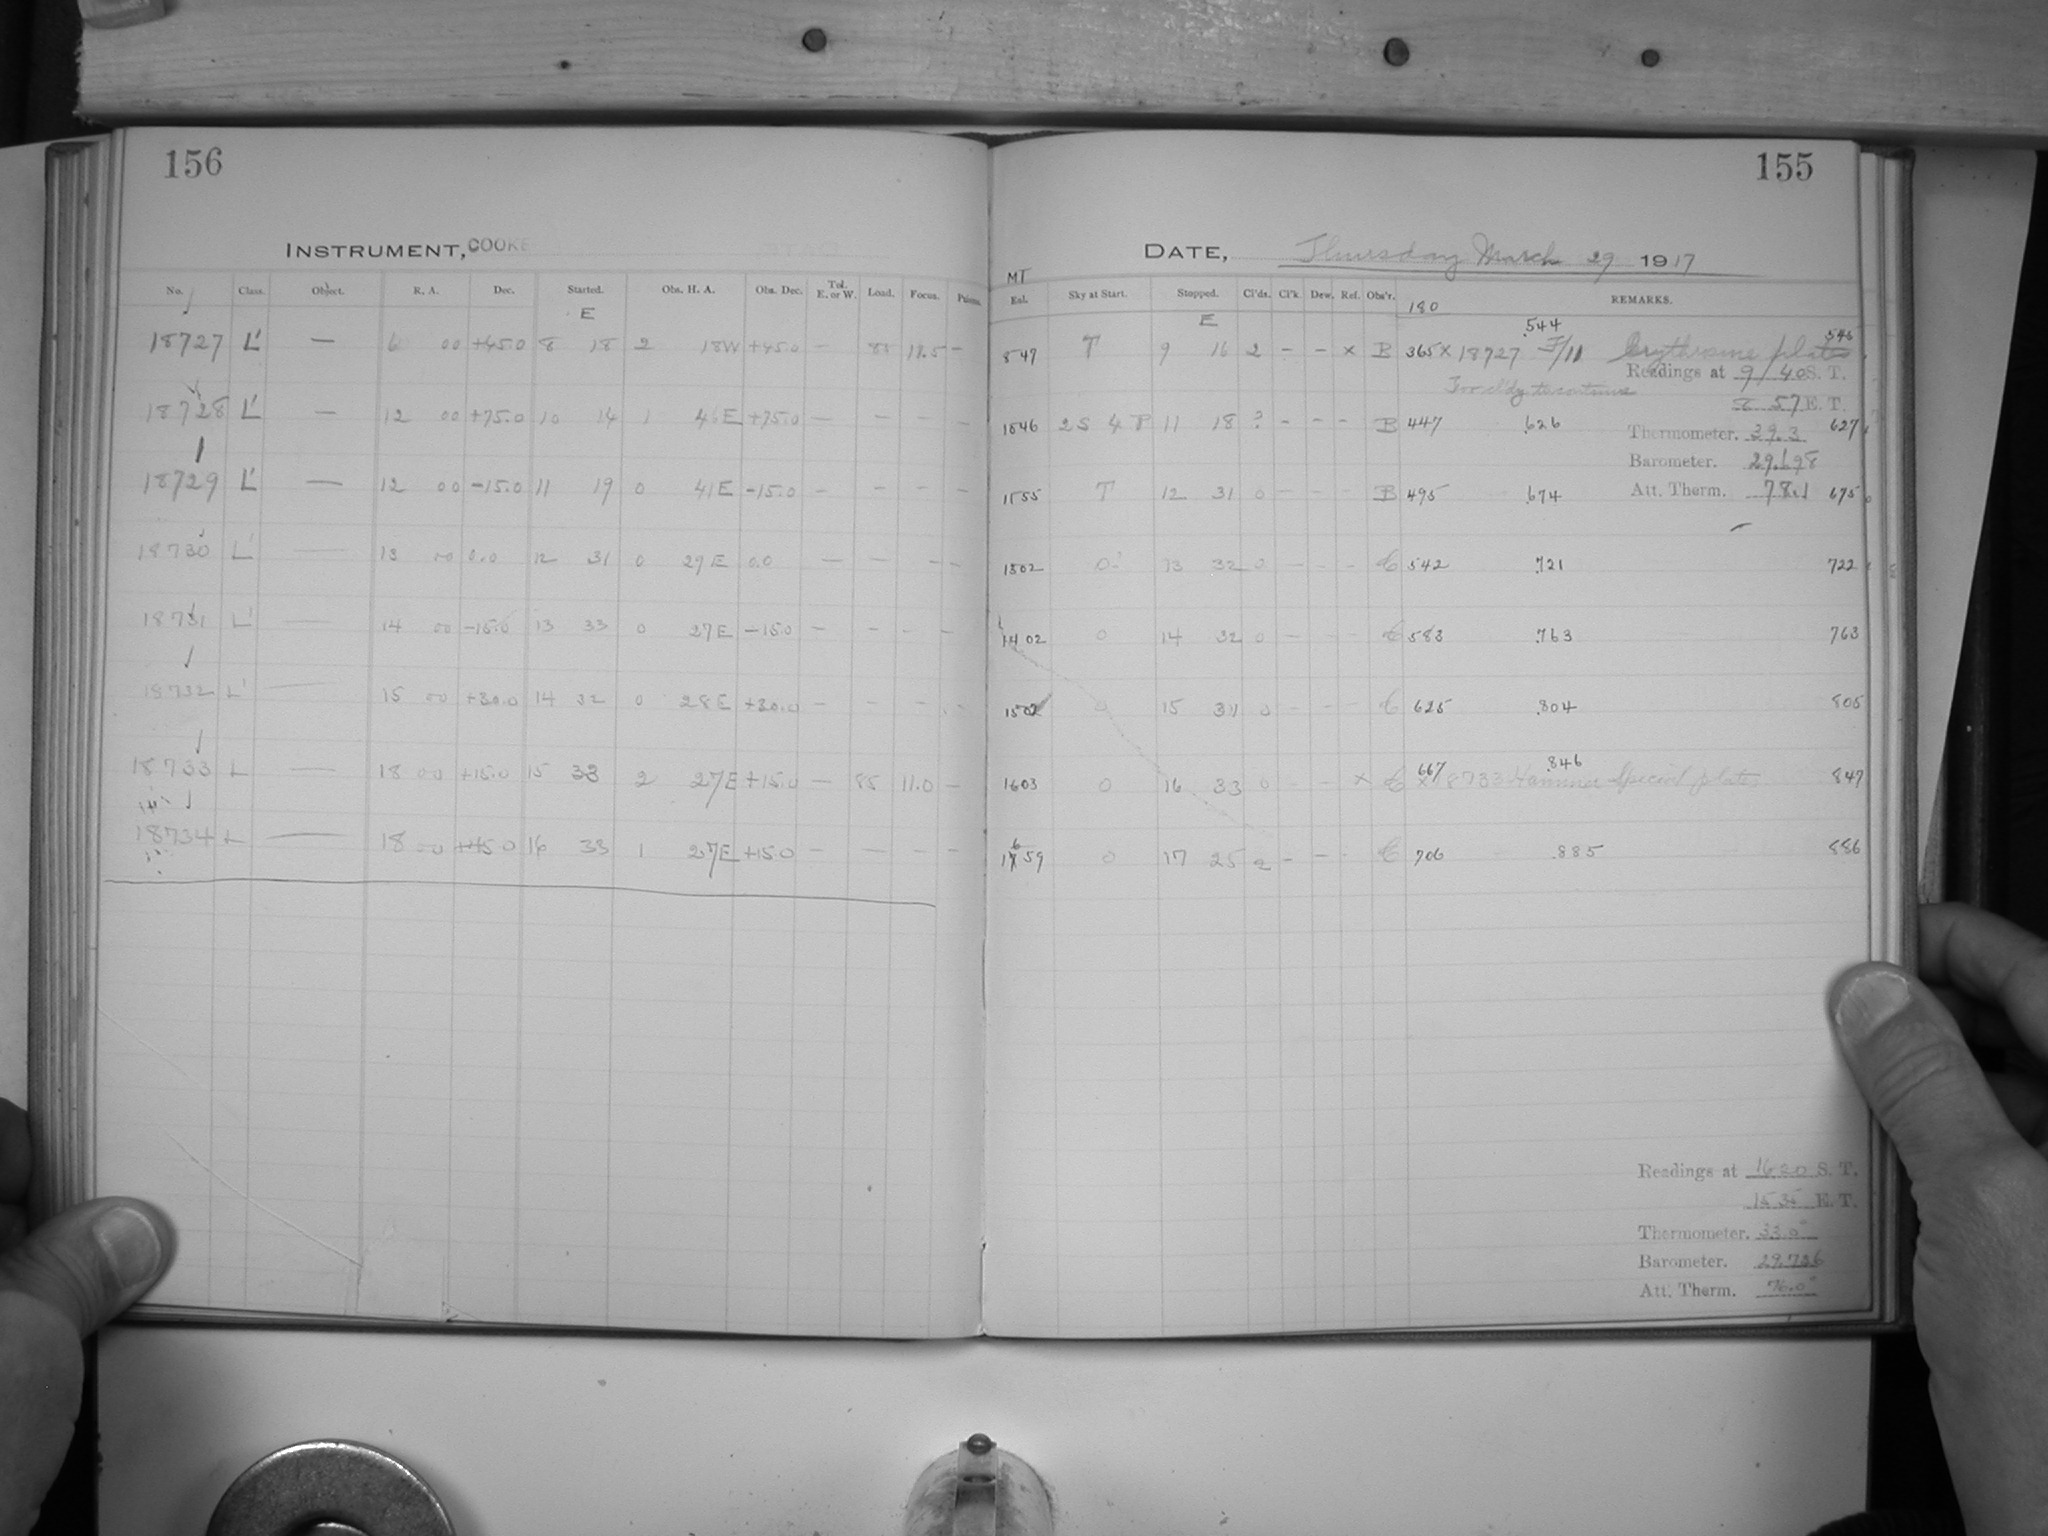 156
155
INSTRUMENT, COOKE
DATE, Thursday March 29 1917
No. Class. Object. R. A. Dec. Started. Obs. H. A. Obs. Dec. Tel. E. or W. Load. Focus.
MT
Exl. Sky at Start. Stopped. Cl'ds. Cl'k. Dew. Ref. Obs'r. 180 REMARKS.
E
E
544
545
18727 L' — 6 00 +45.0 8 18 2 18W +45.0 — 85 11.5 —
847 T 9 16 2 - - x B 365 x 18727 F/11 Erythrosine plate
Readings at 9/40 S. T.
Too cldy to continue
8 57 E. T.
18728 L' — 12 00 +75.0 10 14 1 46E +75.0 — — — —
1046 2S 4T 11 18 ? - - - B 447 .626 627
Thermometer. 39.3
Barometer. 29.698
Att. Therm. 78.1
18729 L' — 12 00 -15.0 11 19 0 41E -15.0 — — — —
1155 T 12 31 0 - - - B 495 .674 675
18730 L' — 13 00 0.0 12 31 0 27E 0.0 — — — —
1302 0 13 32 0 - - - C 542 .721 722
18731 L' — 14 00 -15.0 13 33 0 27E -15.0 — — — —
1402 0 14 32 0 - - - C 583 .763 763
18732 L' — 15 00 +30.0 14 32 0 28E +30.0 — — — —
1502 0 15 31 0 - - - C 625 .804 805
667 .846
18733 L — 18 00 +15.0 15 33 2 27E +15.0 — 85 11.0 —
1603 0 16 33 0 - - x C x 18733 Hammer Special plate 847
18734 L — 18 00 +15.0 16 33 1 27E +15.0 — — — —
1659 0 17 25 2 - - - C 706 .885 886
Readings at 16 20 S. T.
15 35 E. T.
Thermometer. 33.0°
Barometer. 29.736
Att. Therm. 76.0°